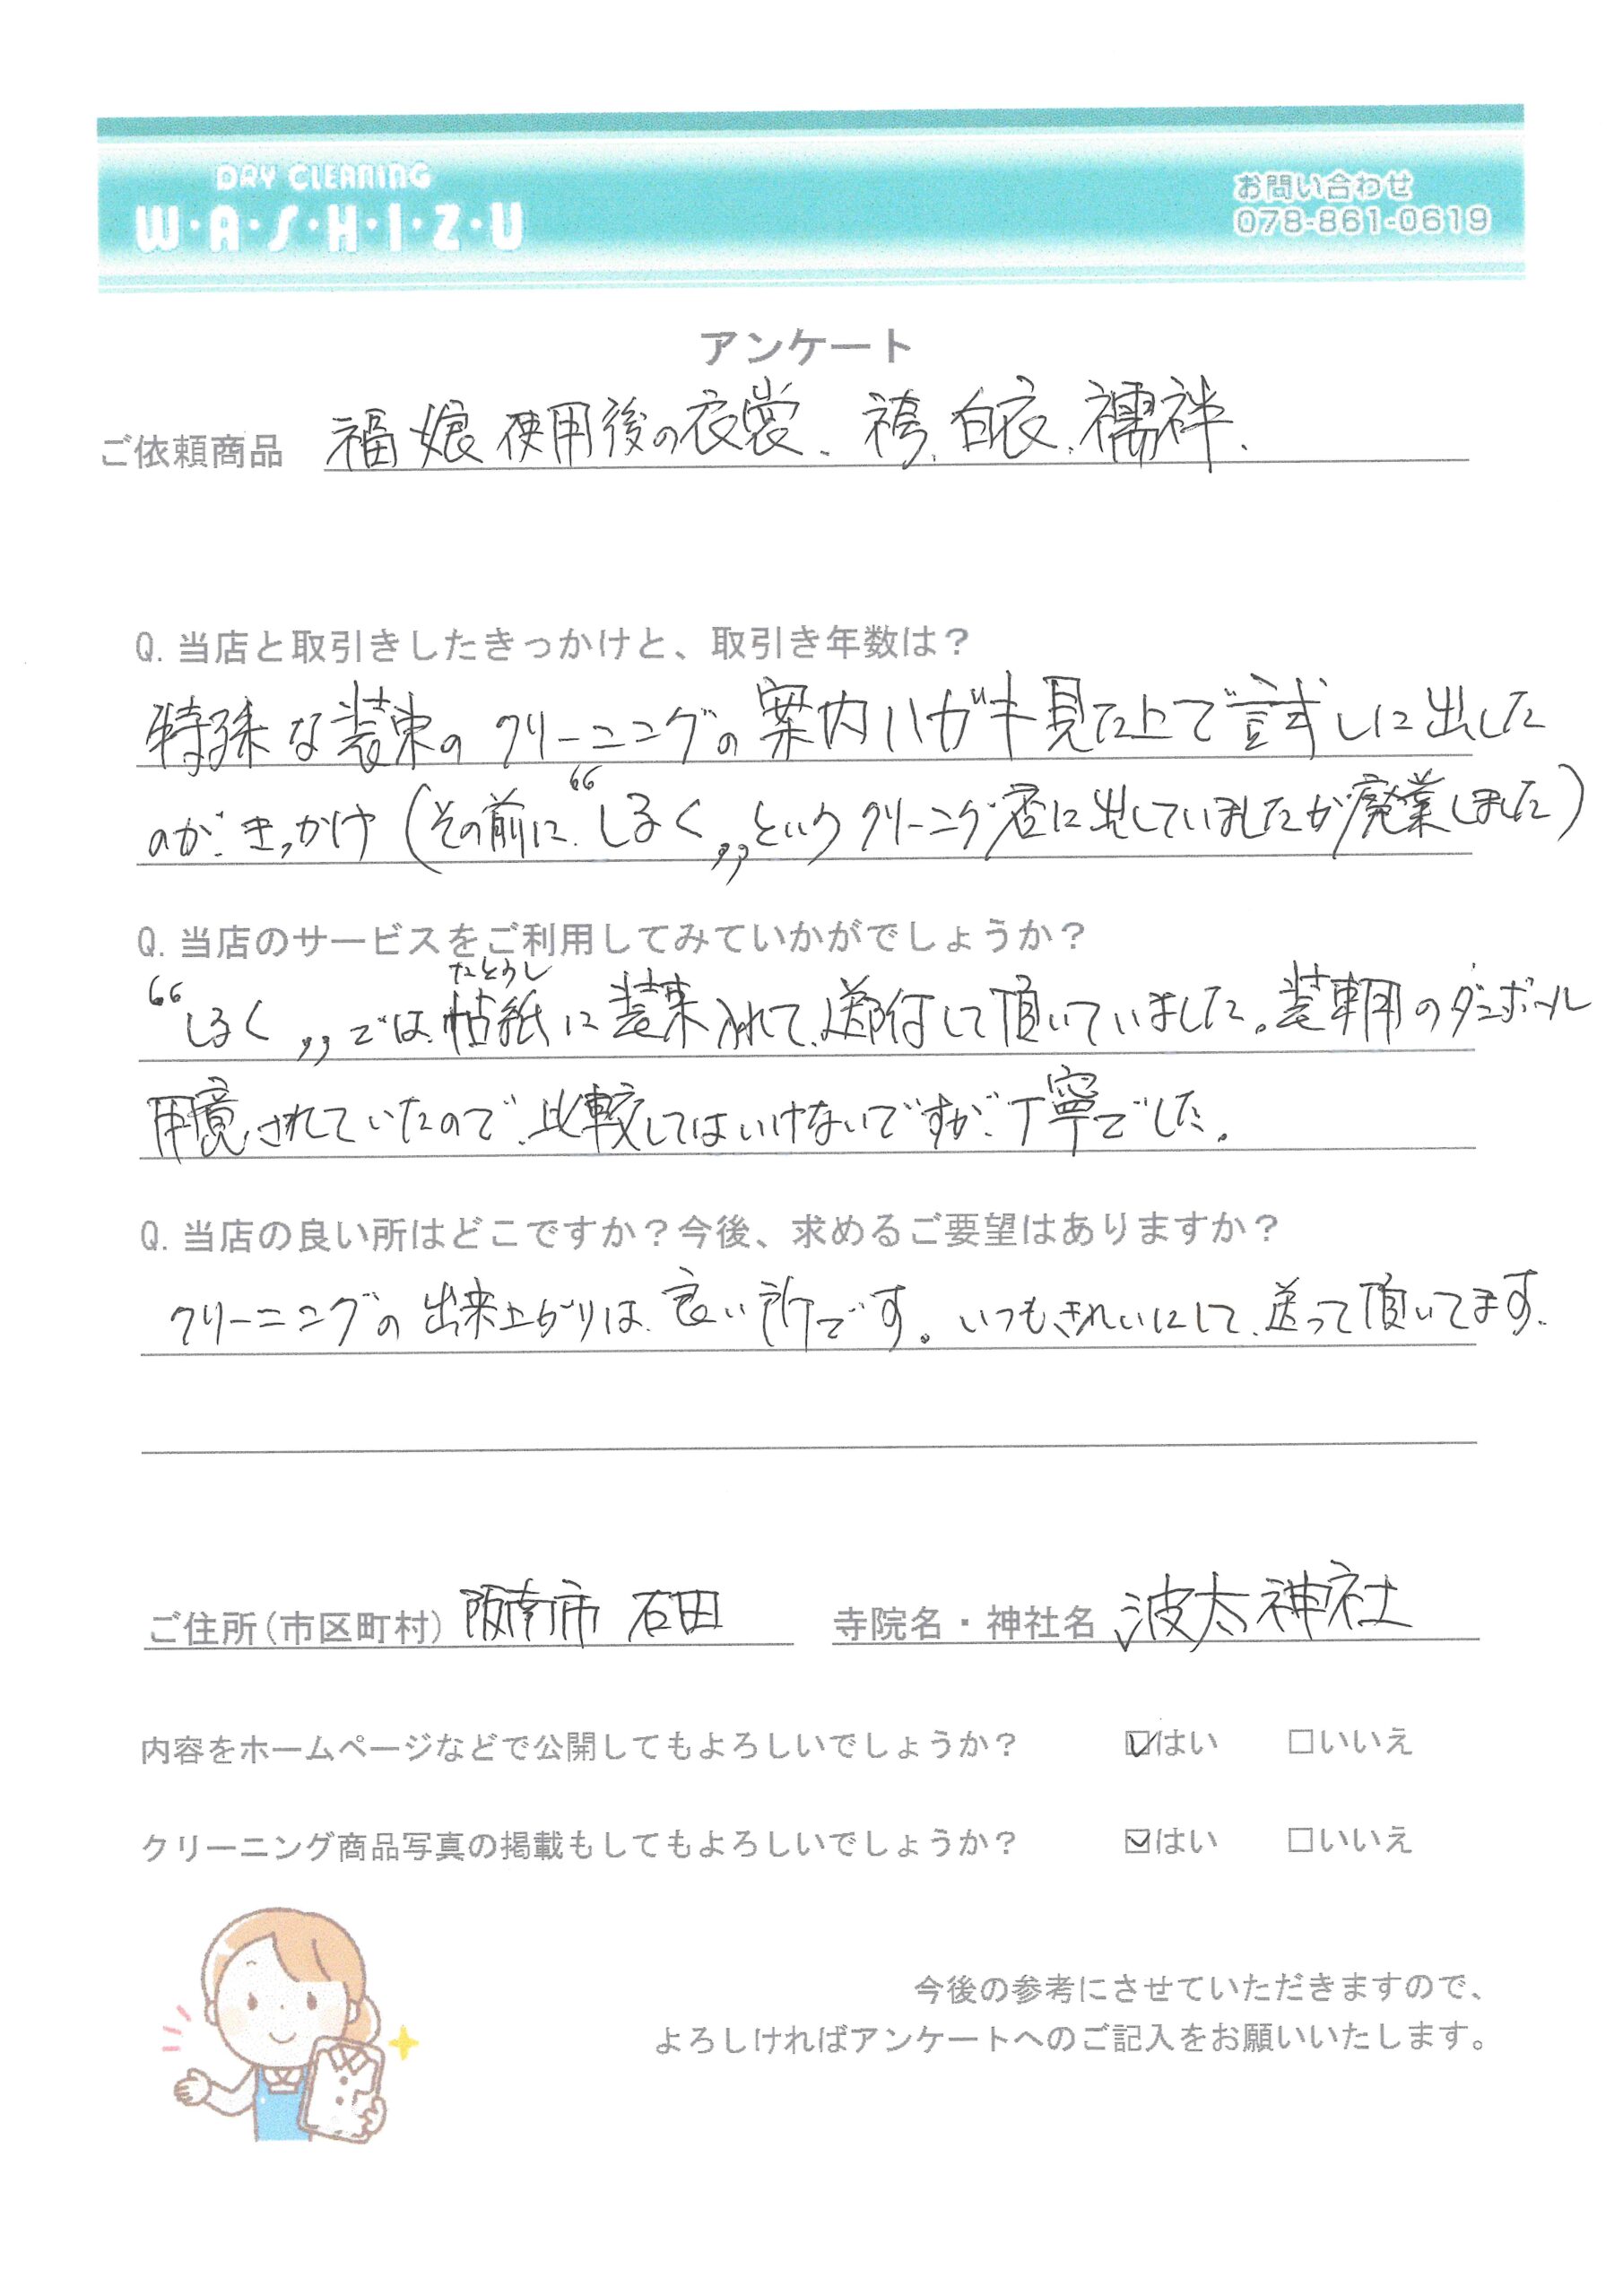 DRY CLEANING
W・A・S・H・I・Z・U
お問い合わせ
078-861-0619
アンケート
ご依頼商品 福娘使用後の衣裳、袴、白衣、襦袢、
Q. 当店と取引きしたきっかけと、取引き年数は？
特殊な装束のクリーニングの案内ハガキ見た上で試しに出した
のが、きっかけ（その前に、“しるく„というクリーニング店に出していましたが廃業しました）
Q. 当店のサービスをご利用してみていかがでしょうか？
たとうし
“しるく„では、帖紙に装束入れて、送付して頂いていました。装束用のダンボール
用意されていたので、比較してはいけないですが、丁寧でした。
Q. 当店の良い所はどこですか？今後、求めるご要望はありますか？
クリーニングの出来上がりは、良い所です。いつもきれいにして、送って頂いてます。
ご住所(市区町村) 阪南市 石田 寺院名・神社名 波太神社
内容をホームページなどで公開してもよろしいでしょうか？ ☑はい □いいえ
クリーニング商品写真の掲載もしてもよろしいでしょうか？ ☑はい □いいえ
今後の参考にさせていただきますので、
よろしければアンケートへのご記入をお願いいたします。